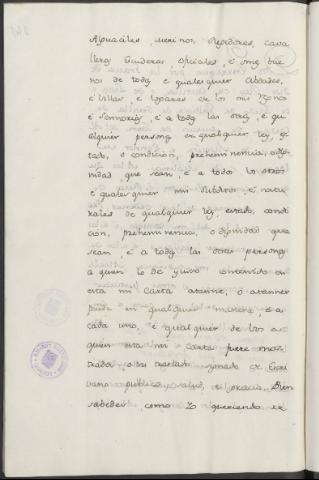 Alguaciles, Merinos, Regidores, cava
lleros Escuderos oficiales, é omes bue
nos de todas é qualesquier Abdades,
é Villas, é Logares de los mis Reynos
é Señorios, é a todas las otras, é qu
alquier persona de qualquier ley, es
tado, o condicion, preheminencia, o dig
nidad que sean, é a todos los otros
é qualesquier mis subditos é natu
rales de qualquier ley, estado, condi
cion, preheminencia, o dignidad que
sean, é a todas las otras personas
a quien lo de yuso contenido en
esta mi Carta atanne, o atanner
puede en qualquier manera é a
cada uno, é qualquier de los a
quien esta mi Carta fuere mos
trada, o su traslado signado de Escri
vano publico, salud, é gracia. Bien
sabedes, como Yo queriendo ex